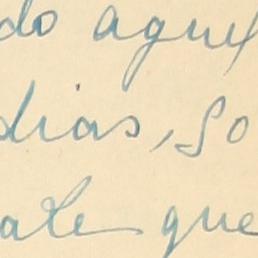 do aquel
dias, so
ate que